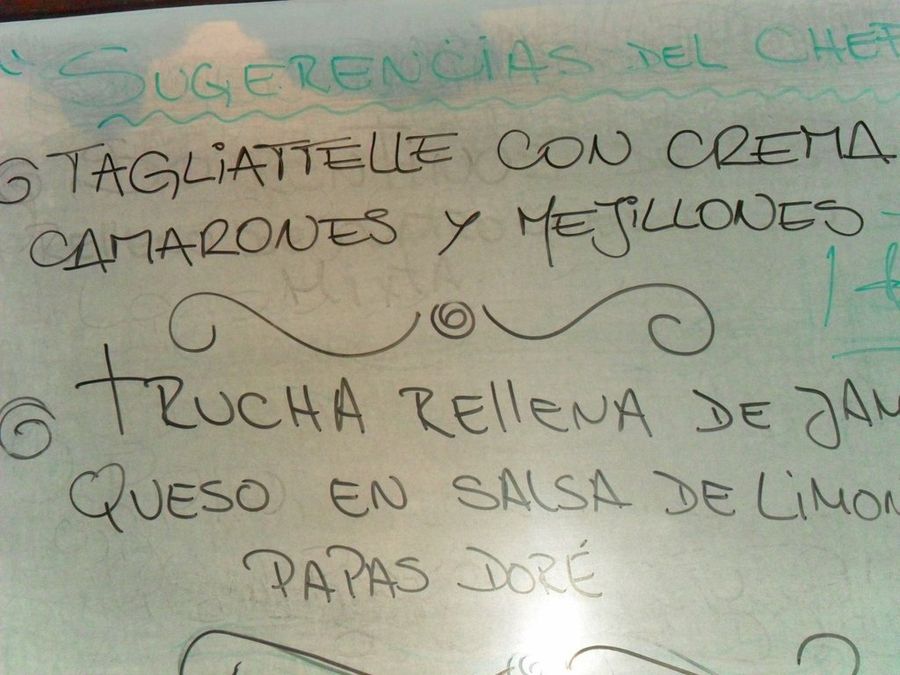 SUGERENCIAS DEL CHEF
TAGLIATTELLE CON CREMA
CAMARONES Y MEJILLONES
TRUCHA RELLENA DE JAM
QUESO EN SALSA DE LIMON
PAPAS DORÉ